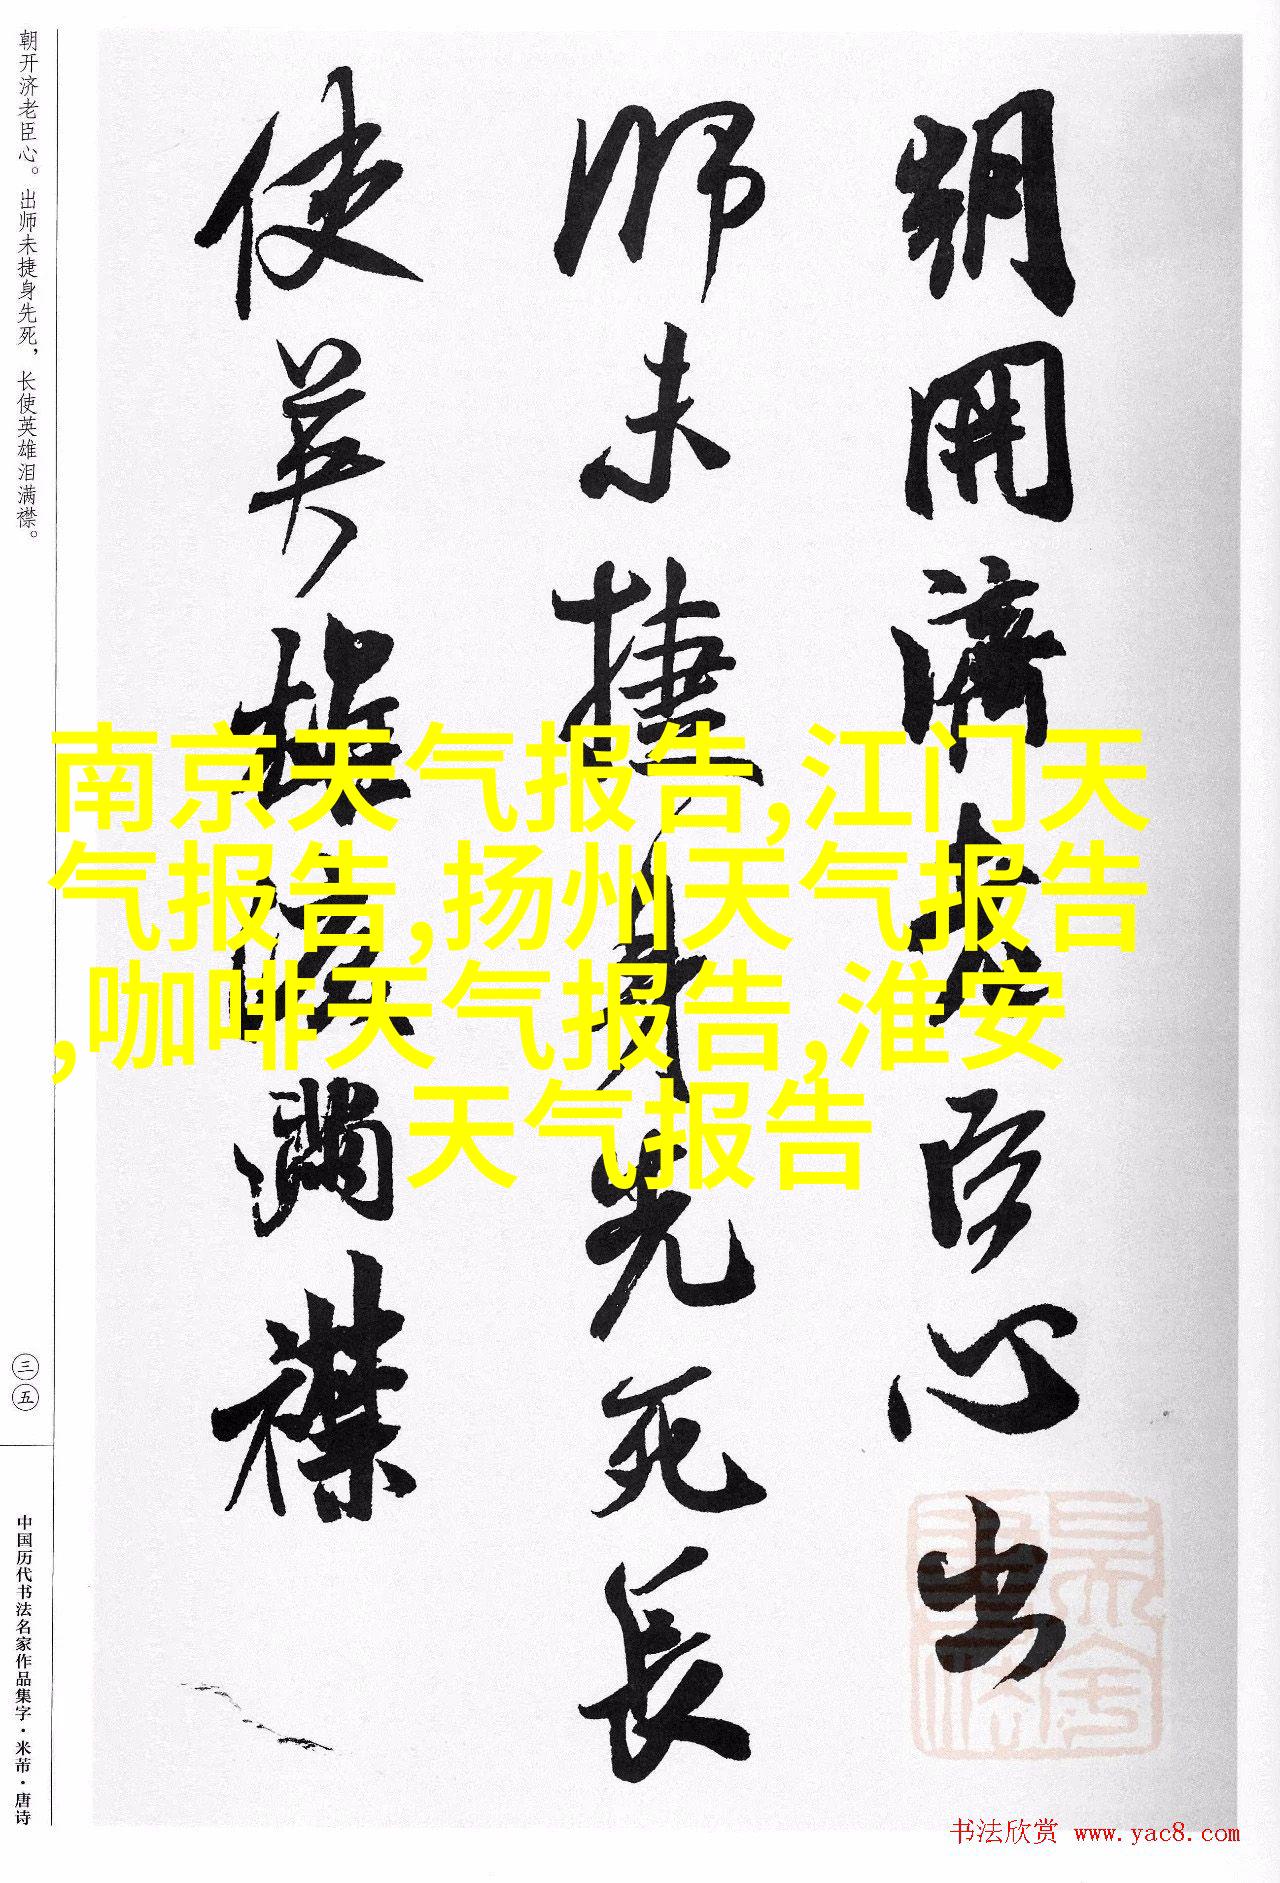 朝开济老臣心。出师未捷身先死，长使英雄泪满襟。
朝開濟老臣心出
師未捷身先死長
使英雄淚滿襟
南京天气报告,江门天
气报告,扬州天气报告
,咖啡天气报告,淮安
天气报告
三五
中国历代书法名家作品集字·米芾·唐诗
书法欣赏 www.yac8.com